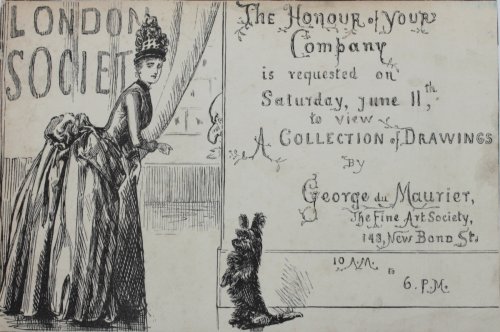 LONDON
SOCIET
The Honour of Your
Company
is requested on
Saturday, June 11th,
to view
A Collection of Drawings
By
George du Maurier,
The Fine Art Society,
148, New Bond St.
10 A.M.
to
6. P.M.